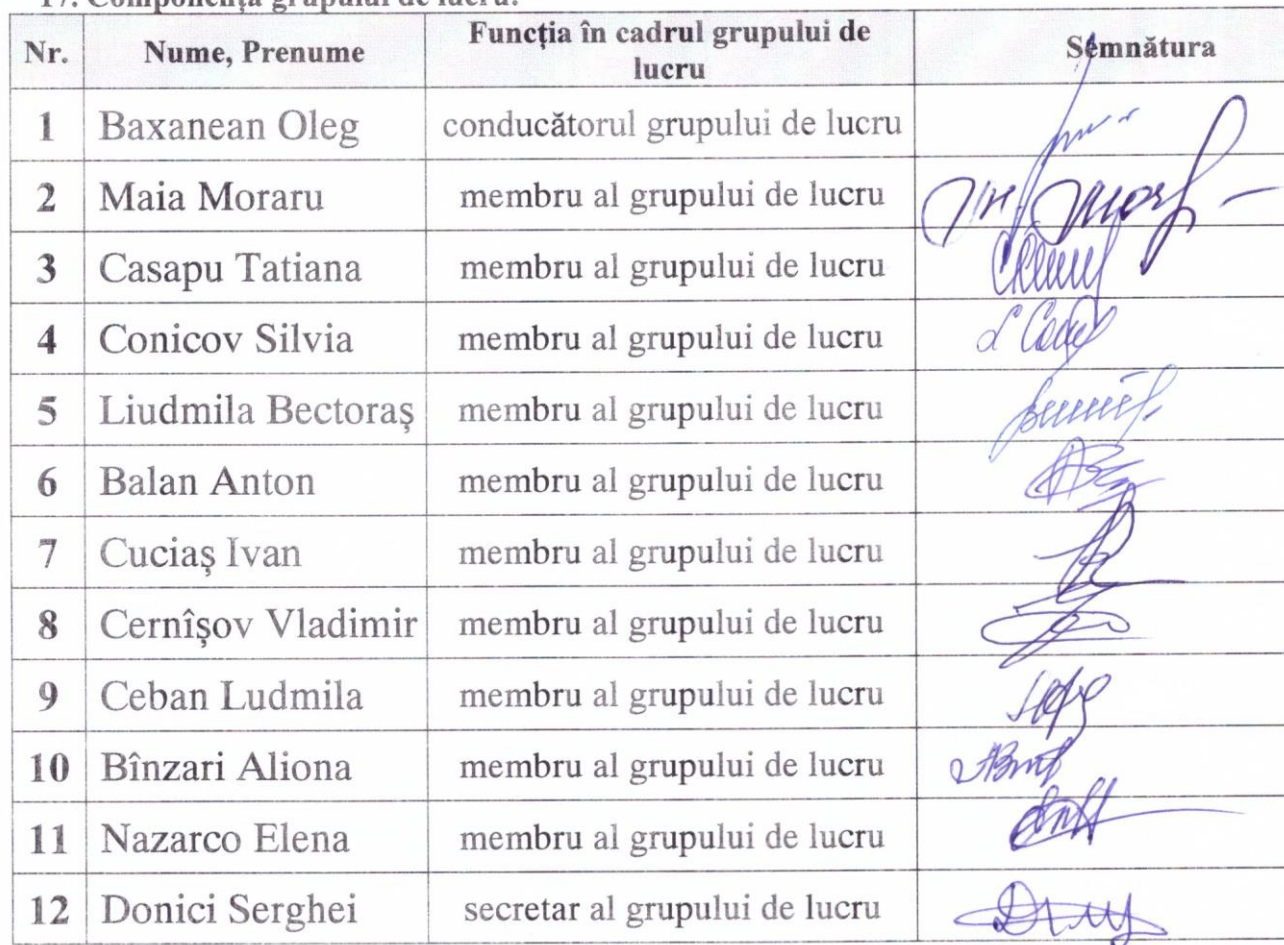 17. Componența grupului de lucru:
Nr. Nume, Prenume Funcția în cadrul grupului de lucru Semnătura
1 Baxanean Oleg conducătorul grupului de lucru
2 Maia Moraru membru al grupului de lucru
3 Casapu Tatiana membru al grupului de lucru
4 Conicov Silvia membru al grupului de lucru
5 Liudmila Bectoraș membru al grupului de lucru
6 Balan Anton membru al grupului de lucru
7 Cuciaș Ivan membru al grupului de lucru
8 Cernîșov Vladimir membru al grupului de lucru
9 Ceban Ludmila membru al grupului de lucru
10 Bînzari Aliona membru al grupului de lucru
11 Nazarco Elena membru al grupului de lucru
12 Donici Serghei secretar al grupului de lucru